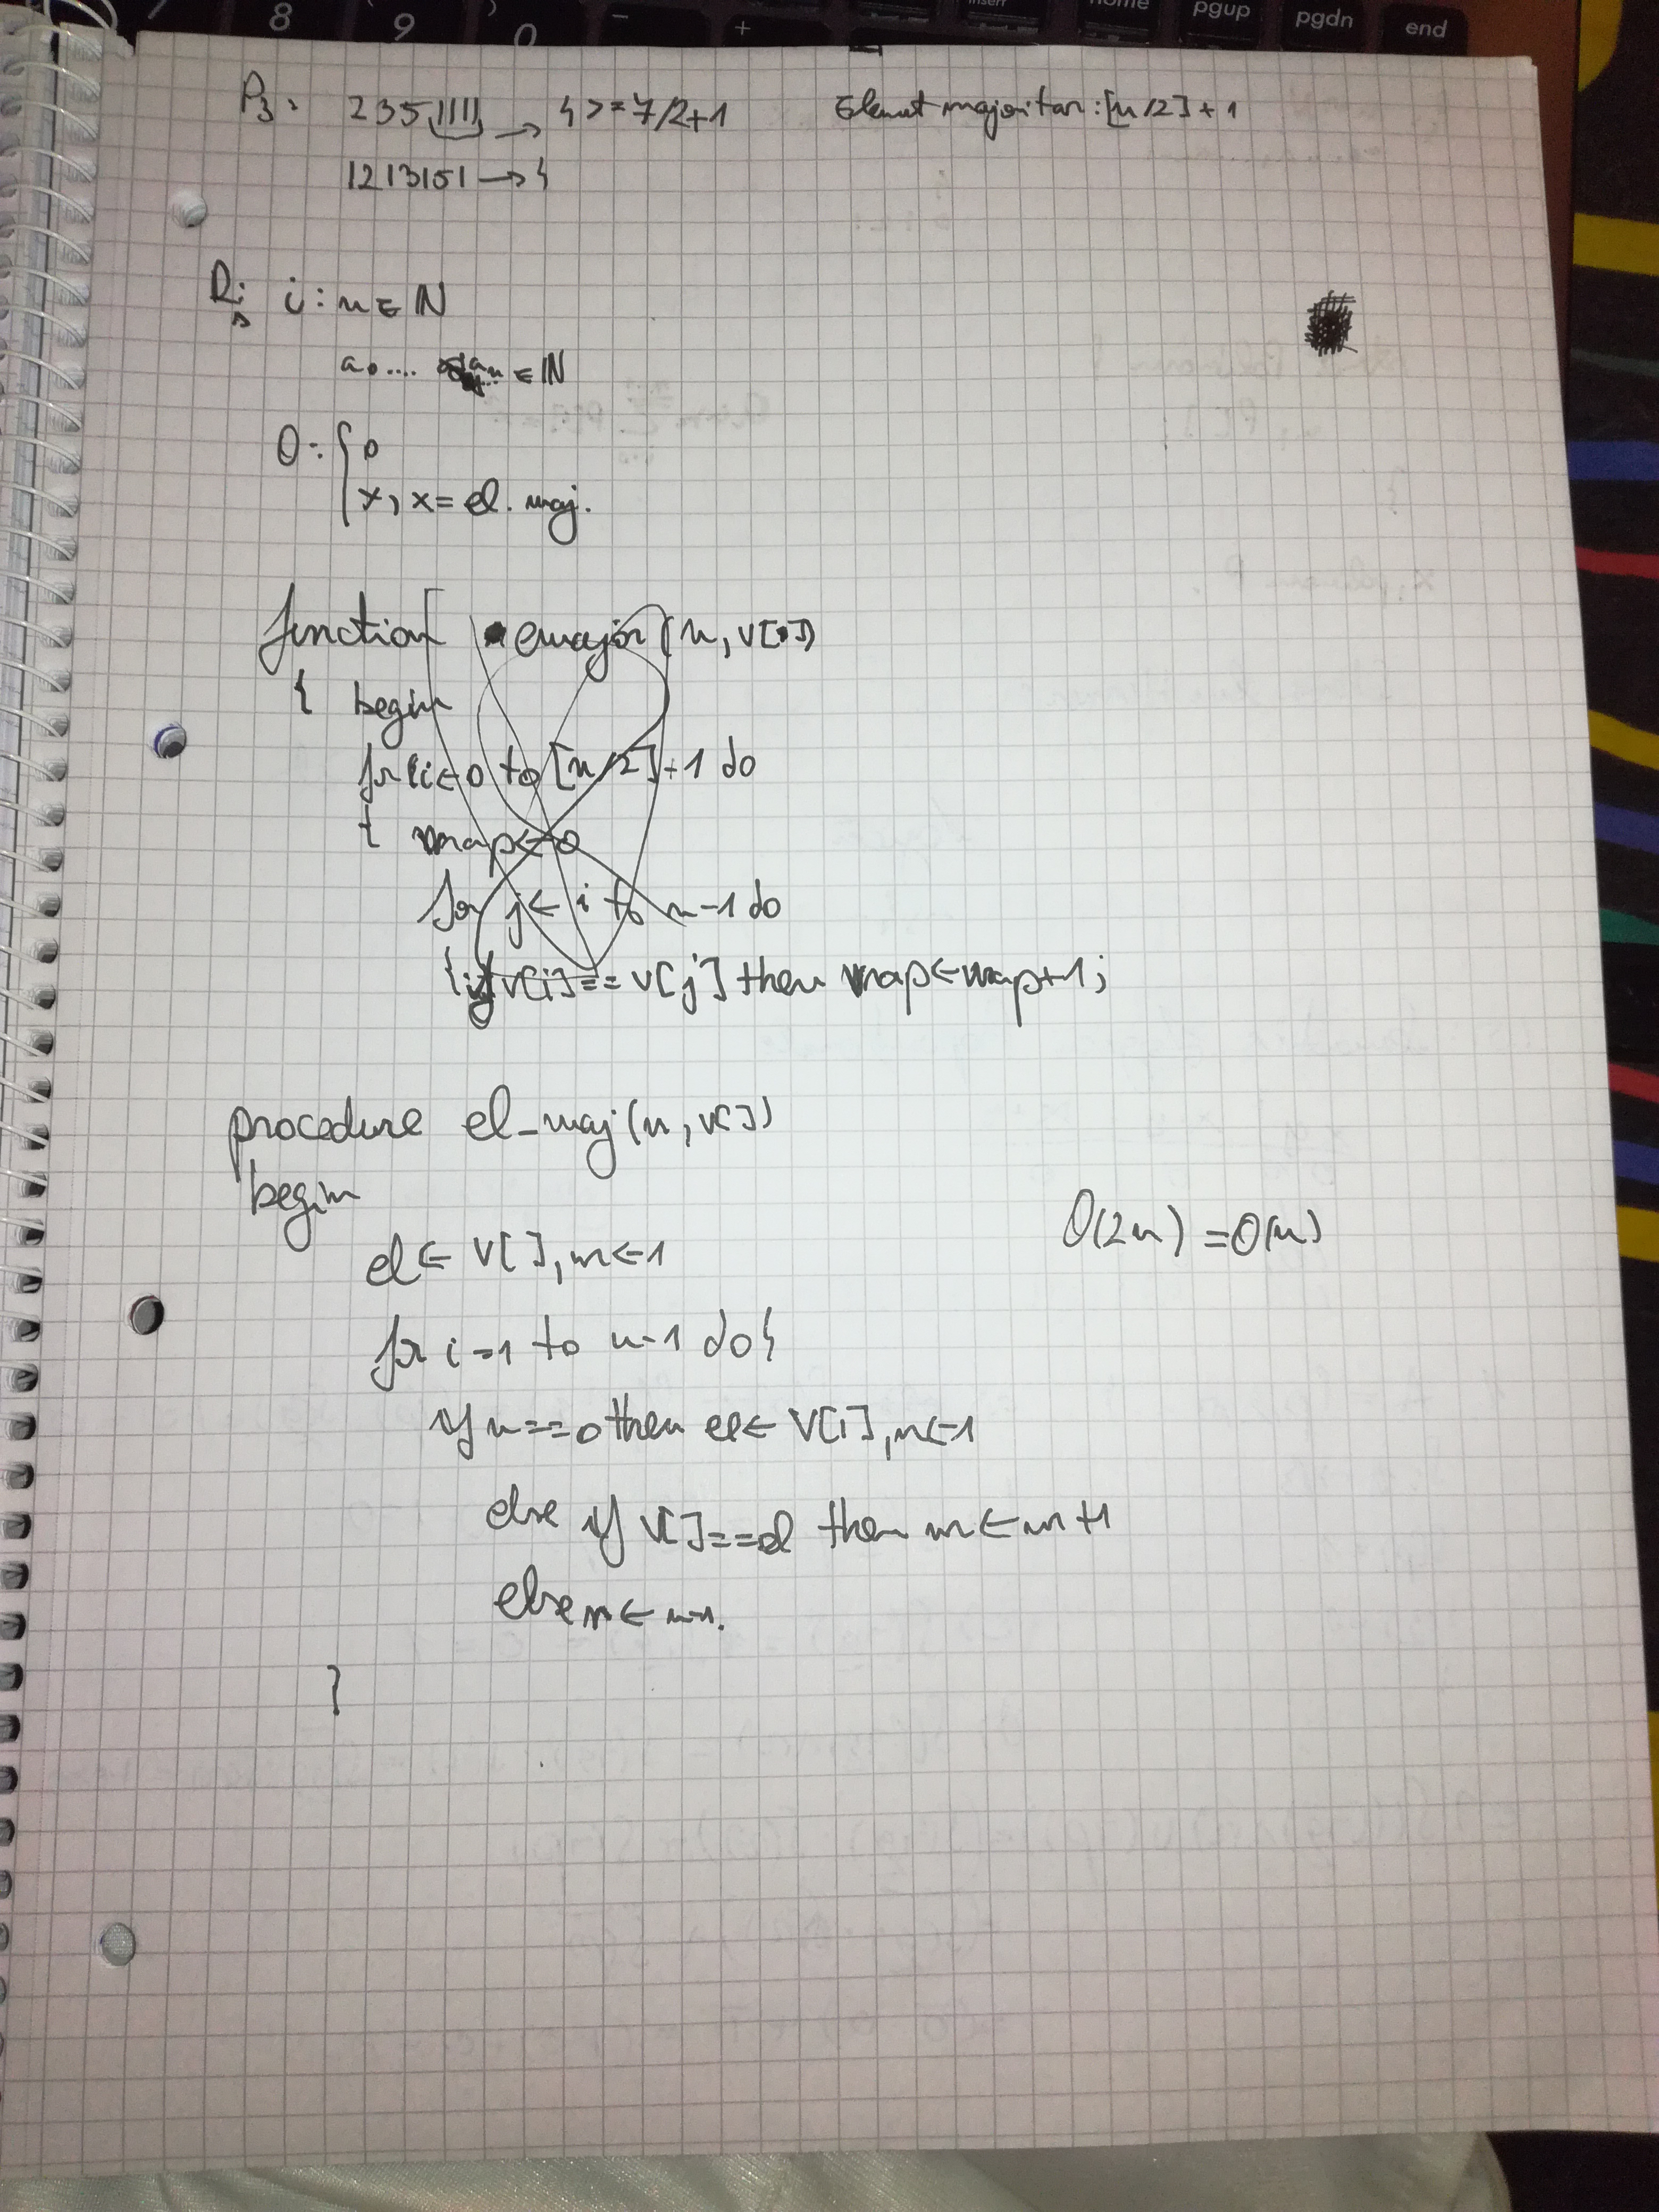 7 8 9 0 - + insert home pgup pgdn end
P3: 2351111 → 4 >= 7/2+1 Element majoritar: [n/2]+1
1213151 → 4
R: i: n ∈ ℕ
a0.... an ∈ ℕ
O: { 0
x, x = el. maj.
function emajor(n, v[])
{ begin
for i ← 0 to [n/2]+1 do
{ nrap ← 0
for j ← i to n-1 do
{ if v[i] == v[j] then nrap ← nrap+1;
procedure el_maj(n, v[])
begin
el ← v[], m ← 1
O(2n) = O(n)
for i=1 to n-1 do {
if n==0 then el ← v[i], m ← 1
else if v[] == el then m ← m+1
else m ← m-1.
}